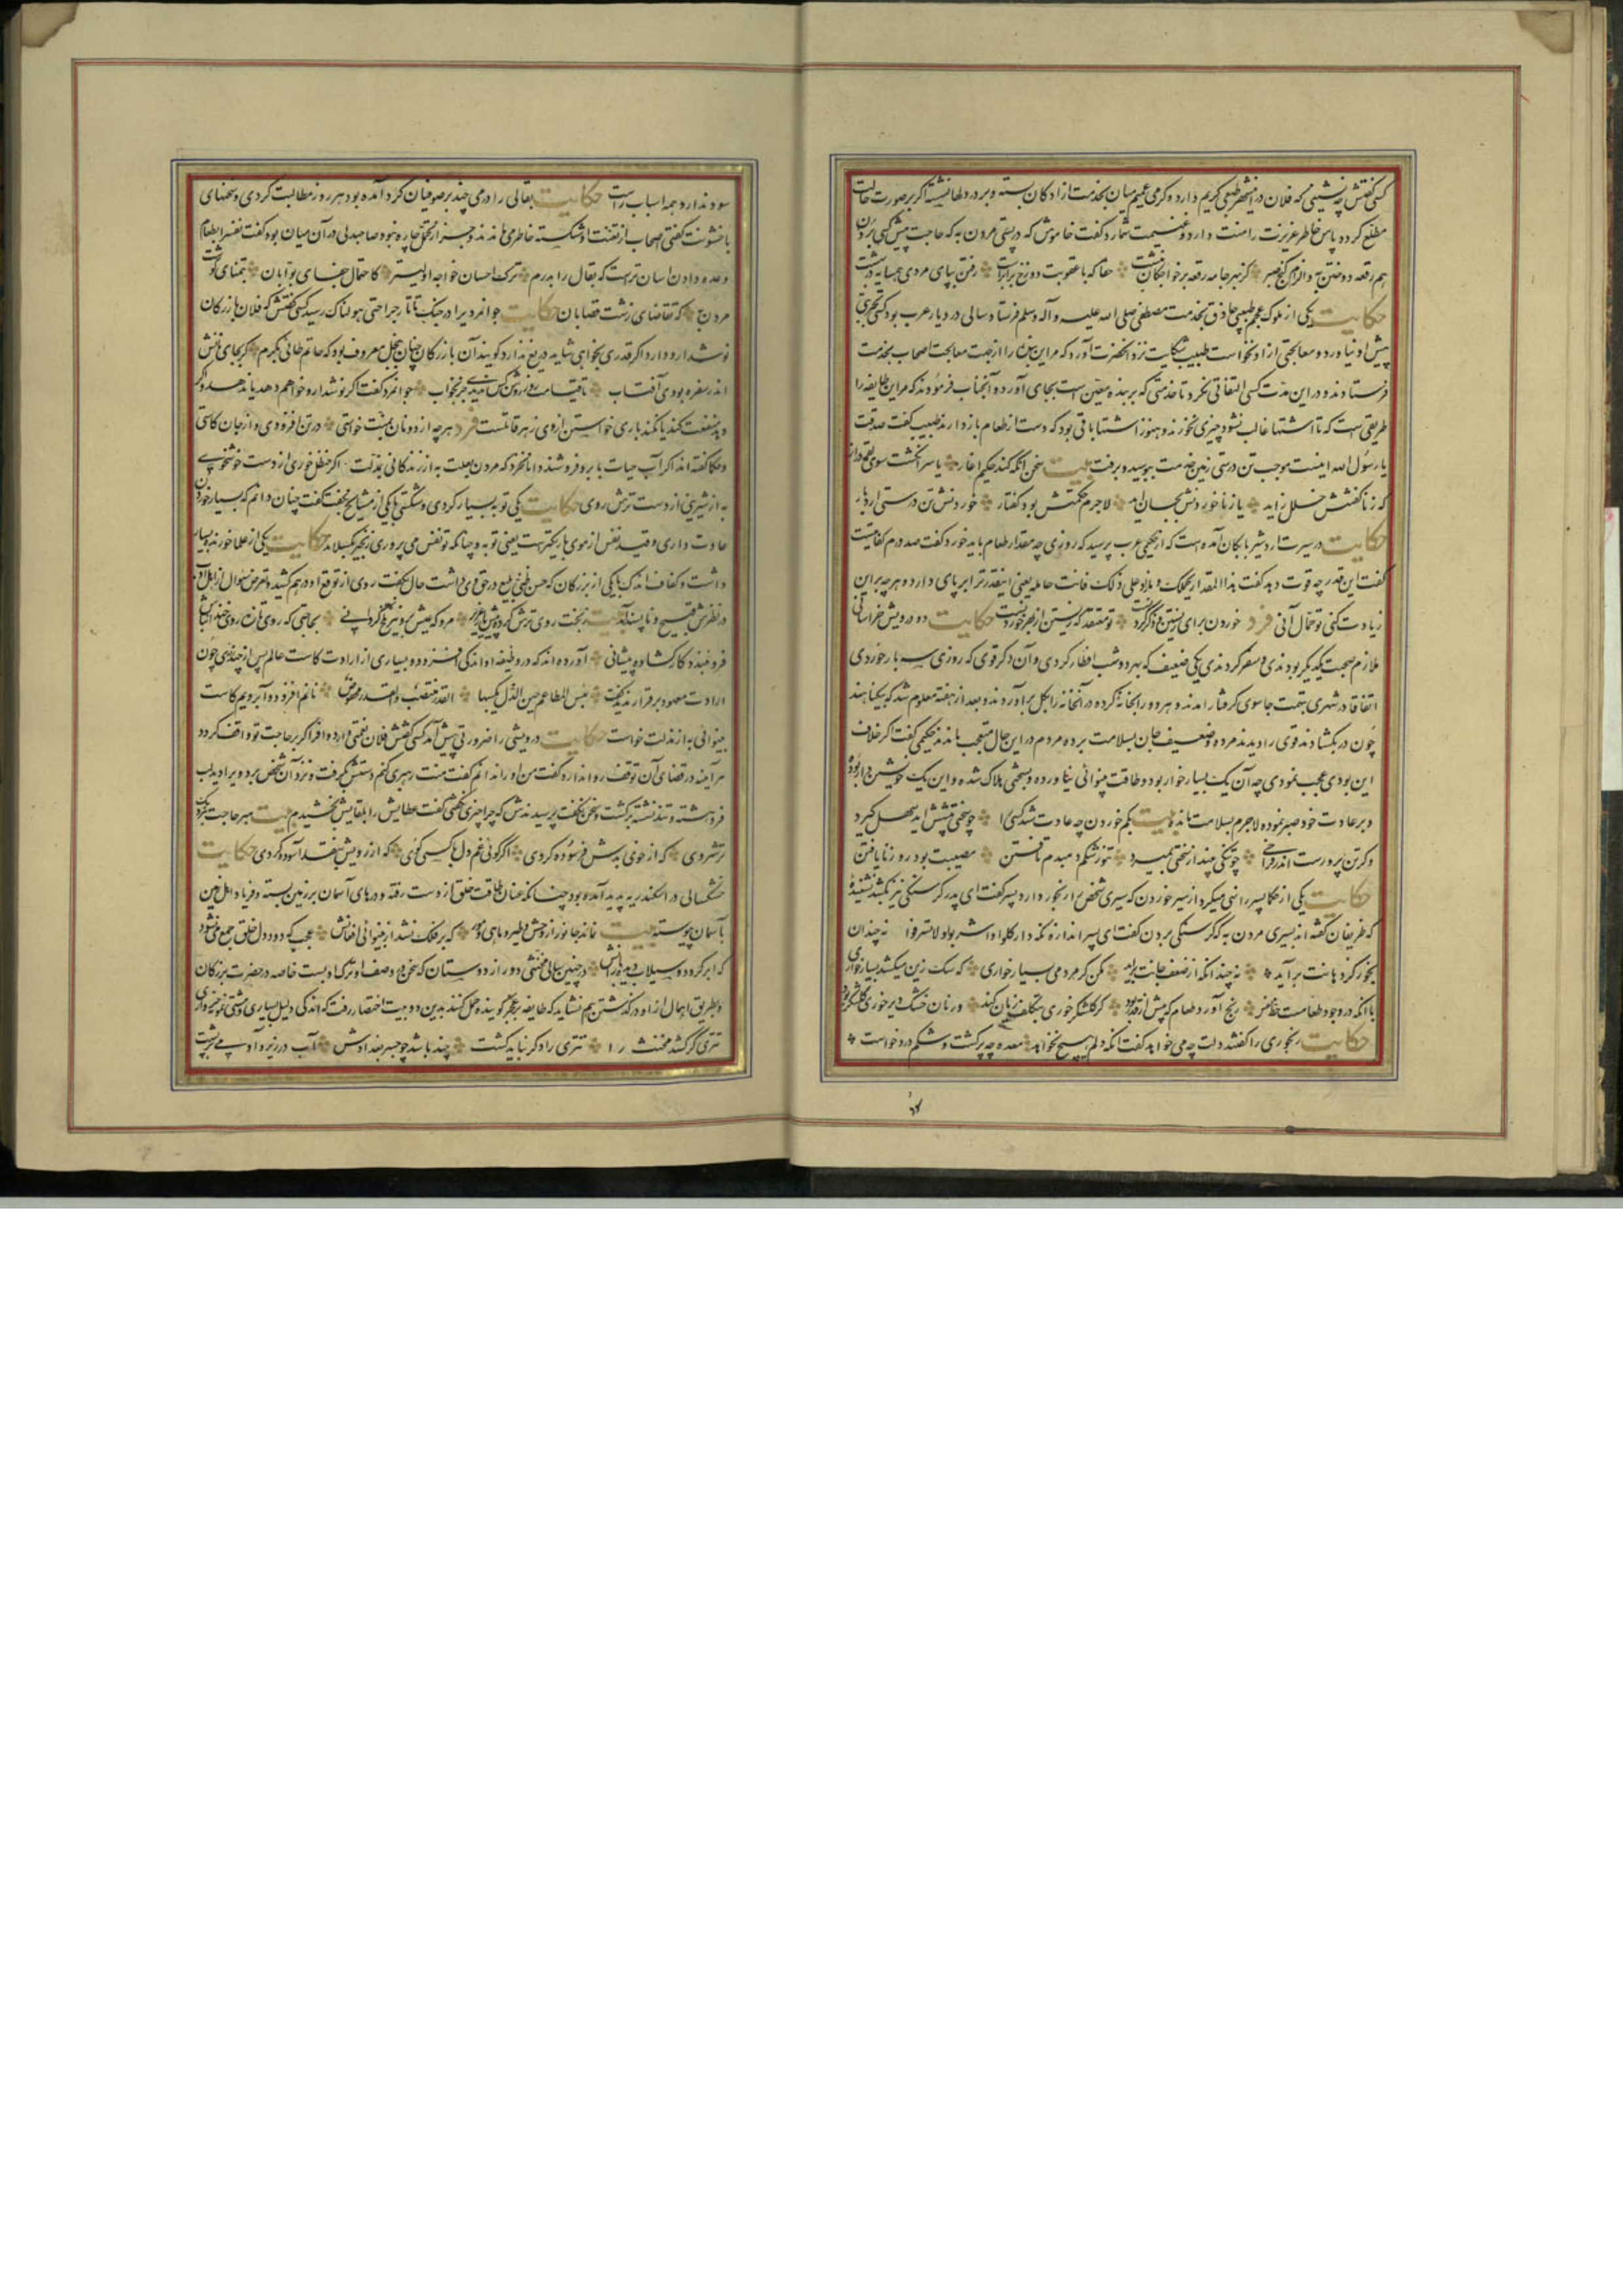 کسی گفتش چه نشینی که فلان درین شهر طبعی کریم دارد و کرمی عمیم میان بخدمت آزادگان بسته و بر در دلها نشسته اگر بر صورت حالت
مطلع گردد پاس خاطر عزیزت را منت دارد و غنیمت شمارد گفت خاموش که در پستی مردن به که حاجت پیش کسی بردن
هم رقعه دوختن به و الزام کنج صبر کز بهر جامه رقعه بر خواجگان نبشت حقا که با عقوبت دوزخ برابرست رفتن بپای مردی همسایه در بهشت
حکایت یکی از ملوک عجم طبیبی حاذق بخدمت مصطفی صلی الله علیه و آله وسلم فرستاد سالی در دیار عرب بود کسی تجربتی
پیش او نیاورد و معالجتی از او نخواست طبیب شکایت نزد آنحضرت آورد که مر این بنده را از جهت معالجت اصحاب بخدمت
فرستادند و در این مدت کسی التفاتی نکرد تا خدمتی که بر بنده معین است بجای آورد آنجناب فرمودند که مر این طایفه را
طریقی است که تا اشتها غالب نشود چیزی نخورند و هنوز اشتها باقی بود که دست از طعام بازدارند طبیب گفت صدقت
یا رسول الله اینست موجب تن درستی زمین خدمت ببوسید و برفت بیت سخن آنگه کند حکیم آغاز یا سر انگشت سوی لقمه دراز
که ز ناگفتنش خلل زاید یا ز ناخوردنش بجان آید لاجرم حکمتش بود گفتار خوردنش تن درستی آرد بار
حکایت در سیرت اردشیر بابکان آمده است که از حکیمی عرب پرسید که روزی چه مقدار طعام باید خورد گفت صد درم کفایتست
گفت این قدر چه قوت دهد گفت هذا المقدار یحملک و ما زاد علی ذلک فانت حامله یعنی اینقدر ترا بر پای دارد و هر چه بر این
زیادت کنی تو حمال آنی فرد خوردن برای زیستن و ذکر کردنست تو معتقد که زیستن از بهر خوردنست حکایت دو درویش خراسانی
ملازم صحبت یکدیگر بودندی و سفر کردندی یکی ضعیف که بهر دو شب افطار کردی و آن دگر قوی که روزی سه بار خوردی
اتفاقا در شهری بتهمت جاسوسی گرفتار آمدند و هر دو را بخانه کرده در آنخانه را بگل برآوردند و بعد از هفته معلوم شد که بیگناهند
چون در بگشادند قوی را دیدند مرده و ضعیف جان بسلامت برده مردم در این حال متعجب بماندند حکیمی گفت اگر خلاف
این بودی عجب نمودی چه آن یک بسیار خوار بود و طاقت بینوائی نیاورده و بسختی هلاک شده و این یک خویشتن دار بوده
و بر عادت خود صبر نموده لاجرم بسلامت مانده بیت بکم خوردن چه عادت شد کسی را چو سختی پیشش آید سهل گیرد
وگر تن پرورست اندر فراخی چو تنگی بیند از سختی بمیرد تنور شکم دمبدم تافتن مصیبت بود روز نایافتن
حکایت یکی از حکما پسر را نهی میکرد از سیر خوردن که سیری شخص را رنجور دارد پسر گفت ای پدر گرسنگی نیز بکشد نشنیدۀ
که ظریفان گفته اند بسیری مردن به که گرسنگی بردن گفت ای پسر اندازه نگه دار کلوا و اشربوا و لا تسرفوا نه چندان
بخور کز دهانت برآید نه چندانکه از ضعف جانت برآید مکن گر مردمی بسیار خواری که سگ زین میکشد بسیار خواری
با آنکه در وجود طعامست حظ نفس رنج آورد طعام که بیش از قدر بود گر گلشکر خوری بتکلف زیان کند ور نان خشک دیر خوری گلشکر بود
حکایت رنجوری را گفتند دلت چه می خواهد گفت آنکه دلم هیچ نخواهد معده چه پر گشت و شکم درد خاست
سود ندارد همه اسباب راست حکایت بقالی را درمی چند بر صوفیان گرد آمده بود هر روز مطالبت کردی و سخنهای
با خشونت گفتی اصحاب از تعنت او شکسته خاطر می ماندند و جز از تحمل چاره نبود صاحبدلی در آن میان بود گفت نفس را بطعام
وعده دادن آسان ترست که بقال را بدرم ترک احسان خواجه اولیتر کاحتمال جفای بوابان بتمنای گوشت
مردن به که تقاضای زشت قصابان حکایت جوانمردی را در جنگ تاتار جراحتی هولناک رسید کسی گفتش که فلان بازرگان
نوشدارو دارد اگر قدری بخواهی شاید دریغ ندارد گویند آن بازرگان چنان ببخل معروف بود که حاتم طائی بکرم گر بجای نانش
اندر سفره بودی آفتاب تا قیامت روز روشن کس ندیدی جز بخواب جوانمرد گفت اگر نوشدارو خواهم دهد یا ندهد و اگر
دهد منفعت کند یا نکند باری خواستن از وی زهر قاتلست فرد هر چه از دونان بمنت خواستی در تن افزودی و از جان کاستی
و حکما گفته اند اگر آب حیات بآبرو فروشند دانا نخرد که مردن بعلت به از زندگانی بذلت اگر حنظل خوری از دست خوشخوی
به از شیرینی از دست ترش روی حکایت یکی توبه بسیار کردی و شکستی تا یکی از مشایخ بدو گفت چنان دانم که بسیار خوردن
عادت داری و قید نفس از موی باریکترست یعنی توبه و چنانکه تو نفس می پروری زنجیر بگسلاند حکایت یکی از علما خورنده بسیار
داشت و کفاف اندک با یکی از بزرگان که حسن ظنی بلیغ در حق وی داشت حال بگفت روی از توقع او در هم کشید و تعرض سؤال از اهل ادب
در نظرش قبیح و ناپسند آمد بیت ز بخت روی ترش کرده پیش یار عزیز مرو که عیش برو نیز تلخ گردانی بحاجتی که روی تازه روی خندان باش
فرو نبندد کار گشاده پیشانی آورده اند که در وظیفه او اندکی افزود و بسیاری از ارادت کاست عالم پس از چند روز چون
ارادت معهود برقرار ندید گفت بئس المطاعم حین الذل یکسبها القدر منتصب و القدر مخفوض نانم افزود و آبرویم کاست
بینوائی به از مذلت خواست حکایت درویشی را ضرورتی پیش آمد کسی گفتش فلان نعمتی دارد وافر اگر بر حاجت تو واقف گردد
هر آینه در قضای آن توقف روا ندارد گفت من او را ندانم گفت منت رهبری کنم دستش بگرفت و نزد آن شخص برد ویرا دید لب
فرو هشته و تند نشسته برگشت و سخن نگفت پرسیدندش که چرا چیزی نگفتی گفت عطایش را بلقایش بخشیدم بیت مبر حاجت بنزدیک
ترشروی که از خوی بدش فرسوده گردی اگر گوئی غم دل با کسی گوی که از رویش بنقد آسوده گردی حکایت
خشکسالی در اسکندریه پدید آمده بود چنانکه عنان طاقت خلق از دست رفته و درهای آسمان بر زمین بسته و فریاد اهل زمین
بآسمان پیوسته بیت نماند جانور از وحش و طیر و ماهی و مور که بر فلک نشد از بینوائی افغانش عجب که دود دل خلق جمع می نشود
که ابر گردد و سیلاب دیده بارانش در چنین سالی مخنثی دور از دوستان که سخن در وصف او ترک ادبست خاصه در حضرت بزرگان
و بطریق اهمال از او درگذشتن هم نشاید که طایفه بر عجز گوینده حمل کنند بدین دو بیت اختصار رفت که اندکی دلیل بسیاری و مشتی نمونه خرواری
تتری گر کشد مخنث را تتری را دگر نباید کشت چند باشد چو جسر بغدادش آب در زیر و آدمی بر پشت